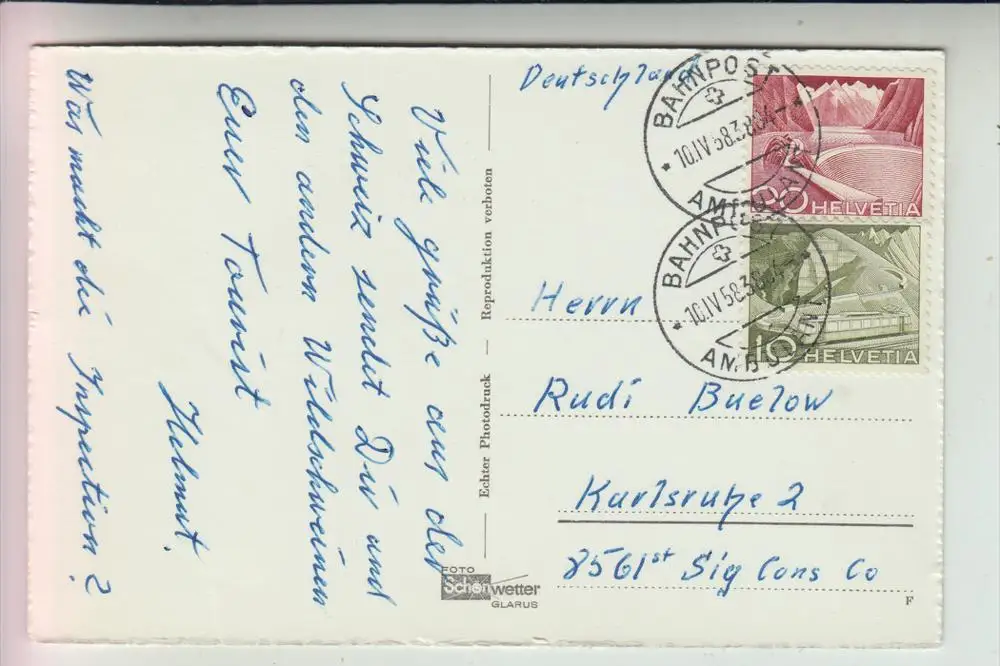 Viele grüße aus der
Schweiz sendet Dir und
den andern Wildschweinen
Euer Tourist
Helmut.
Was macht die Inspection?
Echter Photodruck — Reproduktion verboten
FOTO
Schönwetter
GLARUS
Deutschland
BAHNPOST
10.IV 58.3804
AMBULANT
20 HELVETIA
BAHNPOST
10.IV 58.3804
AMBULANT
10 HELVETIA
Herrn
Rudi Buelow
Karlsruhe 2
8561st Sig Cons Co
F